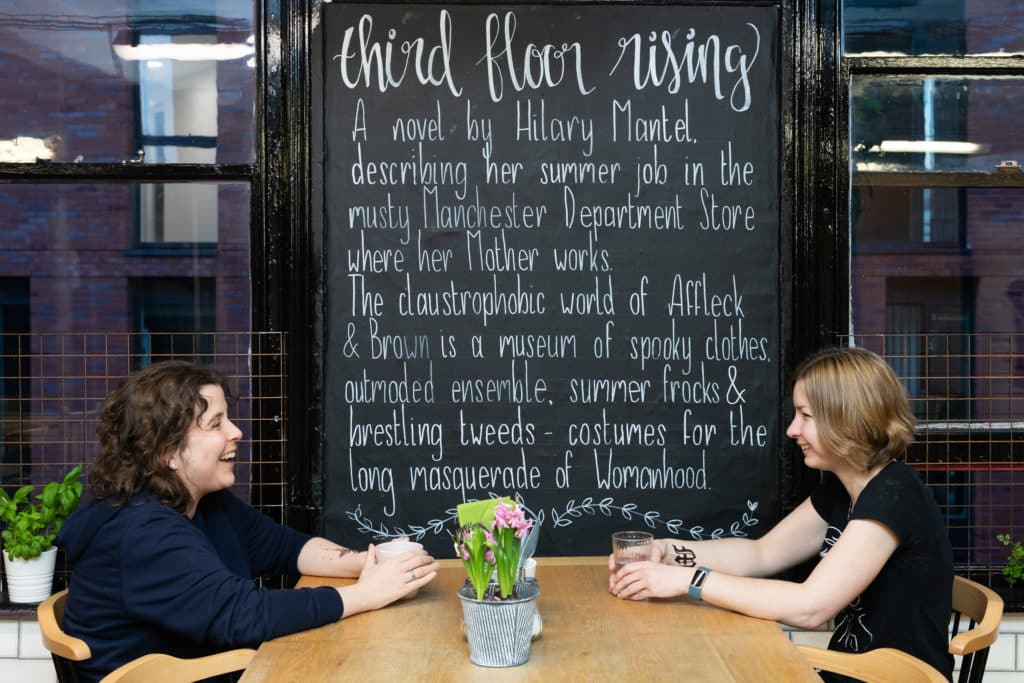 third floor rising
A novel by Hilary Mantel,
describing her summer job in the
musty Manchester Department Store
where her Mother works.
The claustrophobic world of Affleck
& Brown is a museum of spooky clothes,
outmoded ensemble, summer frocks &
brestling tweeds - costumes for the
long masquerade of Womanhood.